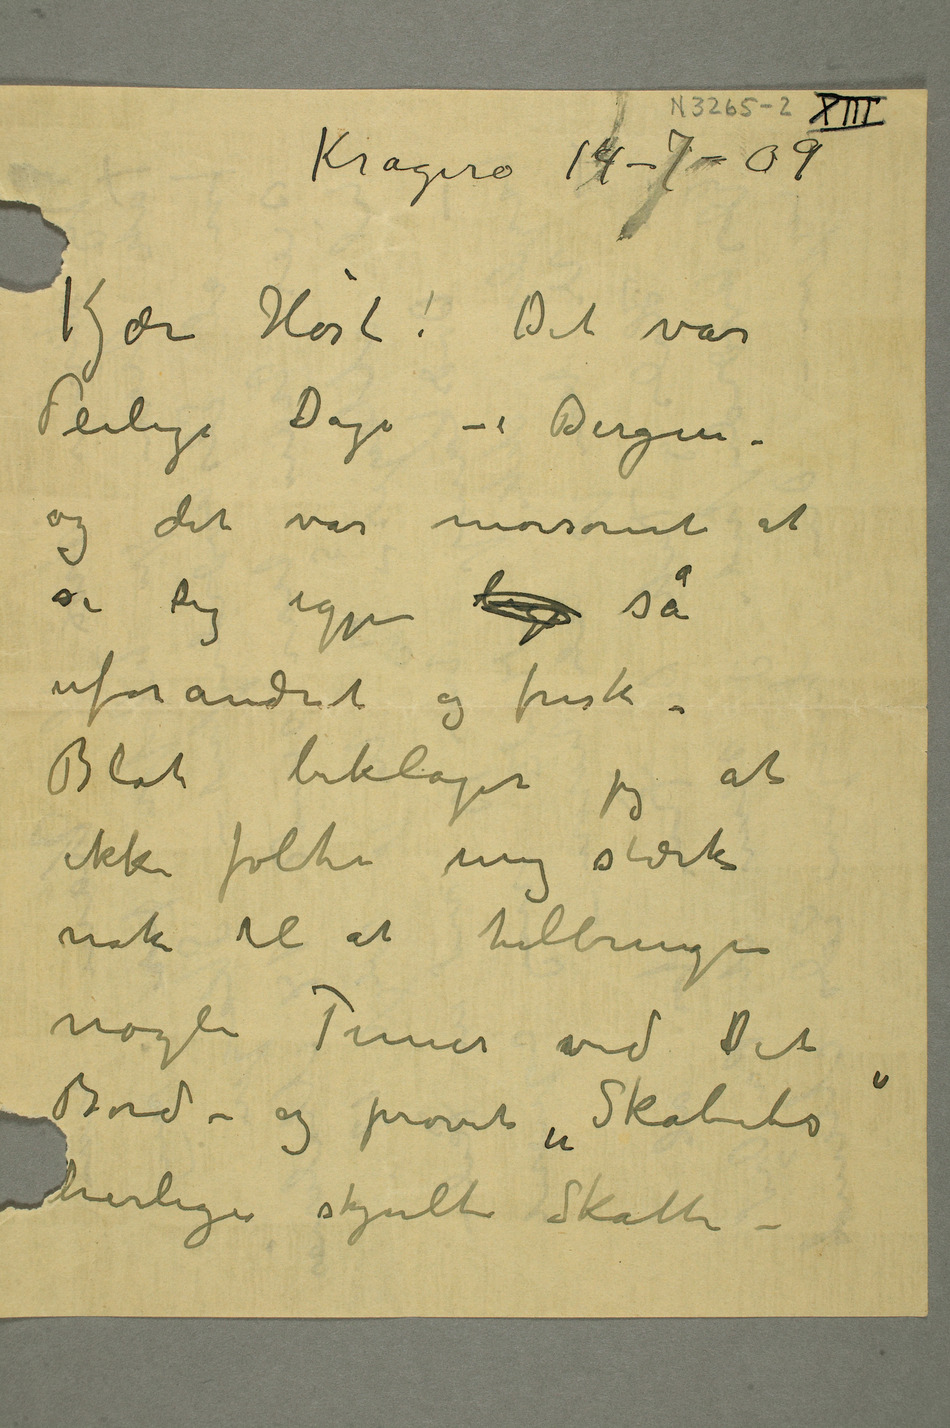 N3265-2 XIII
Kragerø 14-7-09
Kjære Høst! Det var
deilige Dage – i Bergen –
og det var morsomt at
se dig igjen så
uforandret og frisk –
Blot beklager jeg at
ikke følte mig stærk
nok til at tilbringe
nogle Timer ved Dit
Bord – og prøvet „Skabets"
herlige skjulte Skatte –